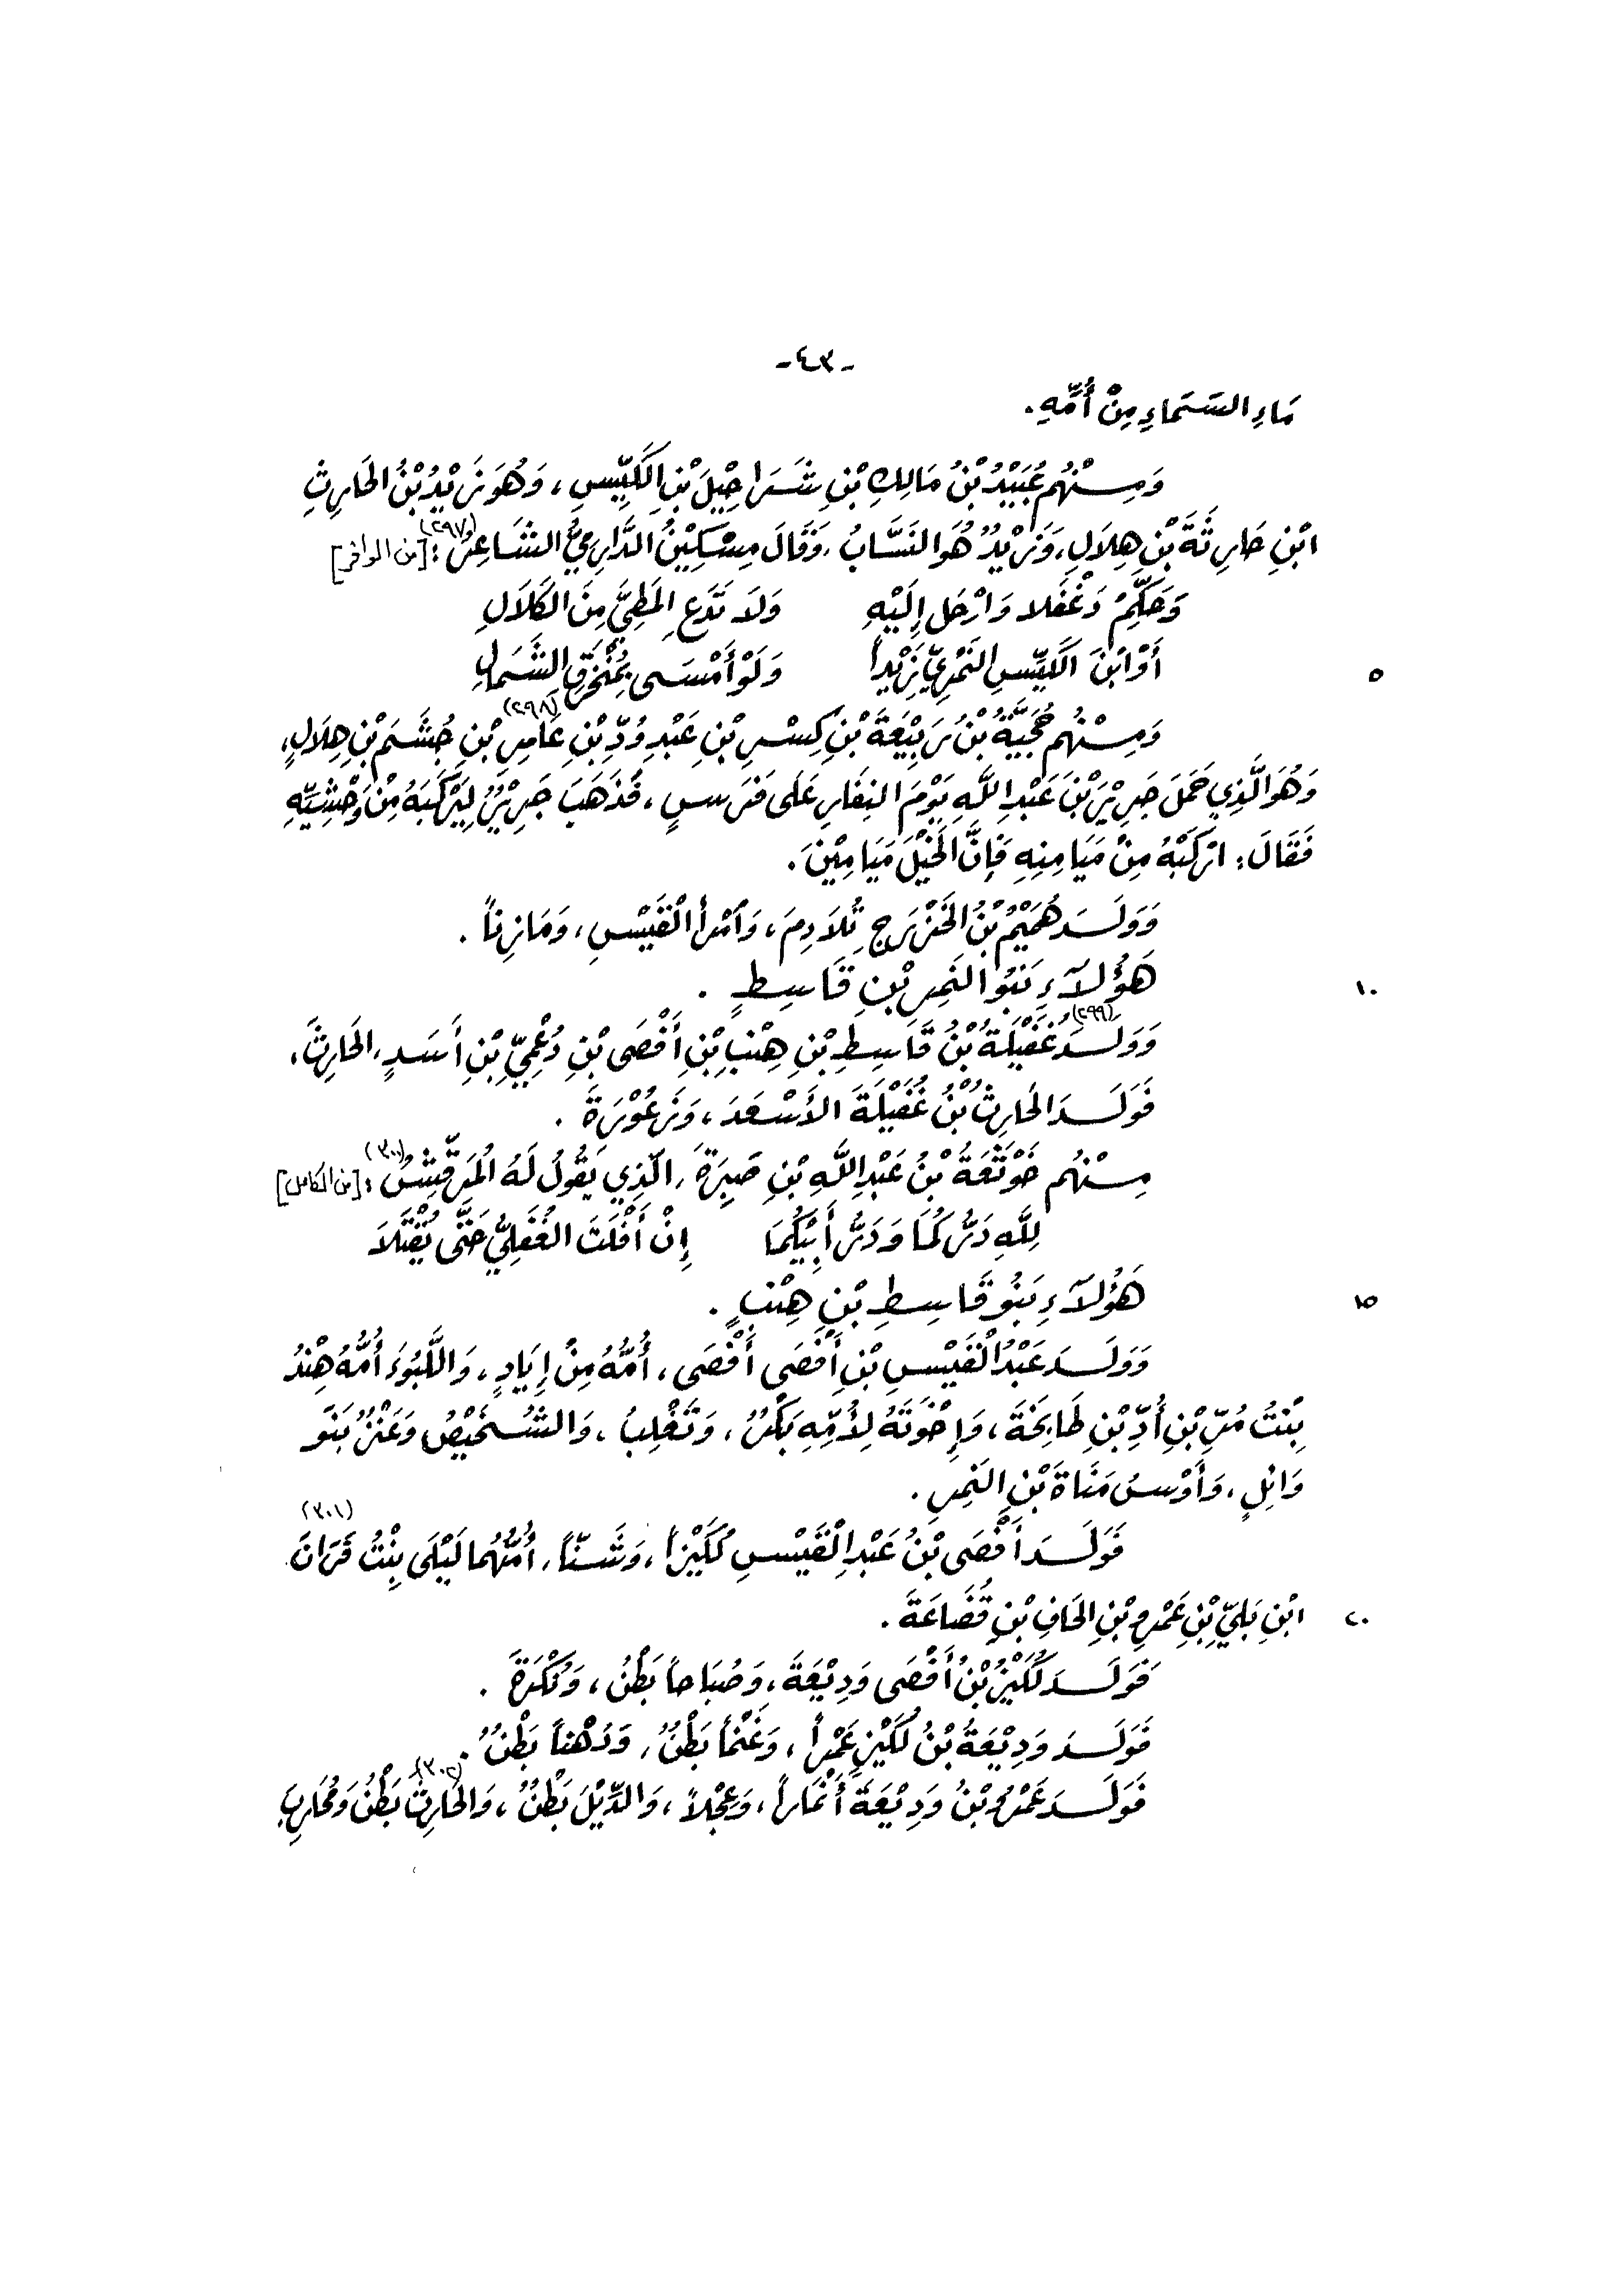 -٤٣-
مَاءِ السَّمَاءِ مِنْ أُمِّهِ.
وَمِنْهُم عُبَيْدُ بْنُ مَالِكِ بْنِ شَرَاحِيْلَ بْنِ الكَيِّسِ، وَهُوَ زَيْدُ بْنُ الحَارِثِ
ابْنِ حَارِثَةَ بْنِ هِلَالِ، وَزَيْدٌ هُوَ النَسَّابُ، وَقَالَ مِسْكِيْنُ الدَّارِمِيُّ الشَاعِرُ (٢٩٧): [من الوافر]
وَحَكِّمْ دَغْفَلا وَارْحَل إِلَيْهِ وَلَا تَدَعِ المَطِيَّ مِنَ الكَلَالِ
٥ أَوْ ابْنَ الكَيِّسِ النَمْرِيّ زَيْداً وَلَوْ أَمْسَى بِمُنْخَرِقِ الشَّمَالِ
وَمِنْهُم حُجَيَّةُ بْنُ رَبِيْعَةَ بْنِ كِسْرِ (٢٩٨) بْنِ عَبْدِ وُدِّ بْنِ عَامِرِ بْنِ جُشَمَ بْنِ هِلَالٍ،
وَهُوَ الَّذِي حَمَلَ جَرِيْرَ بْنَ عَبْدِ اللَّهِ يَوْمَ النِفَارِ عَلَى فَرَسٍ، فَذَهَبَ جَرِيْرٌ لِيَرْكَبَهُ مِنْ وَحْشِيِّهِ
فَقَالَ: ارْكَبْهُ مِنْ مَيَامِنِهِ فَإِنَّ الخَيْلَ مَيَامِيْنَ.
وَوَلَدَ هُمَيْمُ بْنُ الخَزْرَجِ ثُلَادِمَ، وَامْرأَ القَيْسِ، وَمَازِناً.
١٠ هَؤُلَآءِ بَنُو النَمِرِ بْنِ قَاسِطٍ.
وَوَلَدَ غُفَيْلَةُ (٢٩٩) بْنُ قَاسِطِ بْنِ هِنْبِ بْنِ أَفْصَى بْنِ دُعْمِيِّ بْنِ أَسَدٍ، الحَارِثَ،
فَوَلَدَ الحَارِثُ بْنُ غُفَيْلَةَ الأَسْعَدَ، وَزَعُوْرَةَ.
مِنْهُم خَوْتَعَةُ بْنُ عَبْدِ اللَّهِ بْنِ صَبِرَةَ، الَّذِي يَقُولُ لَهُ المُرَقِّشُ (٣٠٠): [من الكامل]
لِلَّهِ دَرُّكُمَا وَدَرُّ أَبِيْكُمَا إِنْ أَفْلَتَ الغُفَلِيُّ حَتَّى يُقْتَلَا
١٥ هَؤُلَآءِ بَنُو قَاسِطِ بْنِ هِنْبٍ.
وَوَلَدَ عَبْدُ القَيْسِ بْنِ أَفْصَى أَفْصَى، أُمُّهُ مِنْ إِيَادٍ، وَاللَّبُوَءَ أُمُّهُ هِنْدُ
بِنْتُ مُرِّ بْنِ أُدِّ بْنِ طَابِخَةَ، وَإِخْوَتَهُ لِأُمِّهِ بَكْرٌ، وَتَغْلِبُ، وَالشُخَيْصُ وَعَنْزُ بَنُو
وَائِلٍ، وَأَوْسُ مَنَاةَ بْنِ النَمِرِ.
فَوَلَدَ أَفْصَى بْنُ عَبْدِ القَيْسِ لُكَيْزاً، وَشَنّاً، أُمُّهُمَا لَيْلَى بِنْتُ فَرَانَ (٣٠١)
٢٠ ابْنِ بَلِيِّ بْنِ عَمْرِو بْنِ الحَافِ بْنِ قُضَاعَةَ.
فَوَلَدَ لُكَيْزُ بْنُ أَفْصَى وَدِيْعَةَ، وَصُبَاحاً بَطْنٌ، وَنُكْرَةَ.
فَوَلَدَ وَدِيْعَةُ بْنُ لُكَيْزٍ عَمْراً، وَغَنْماً بَطْنٌ، وَدُهْناً بَطْنٌ.
فَوَلَدَ عَمْرُو بْنُ وَدِيْعَةَ أَنْمَاراً، وَعِجْلاً، وَالدِّيْلَ بَطْنٌ، وَالحَارِثَ (٣٠٢) بَطْنٌ وَمُحَارِبَ